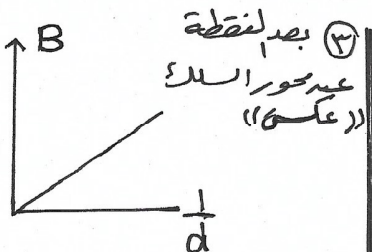 ③ بعد النقطة
عن محور السلك
((عكسى))
B
1
d